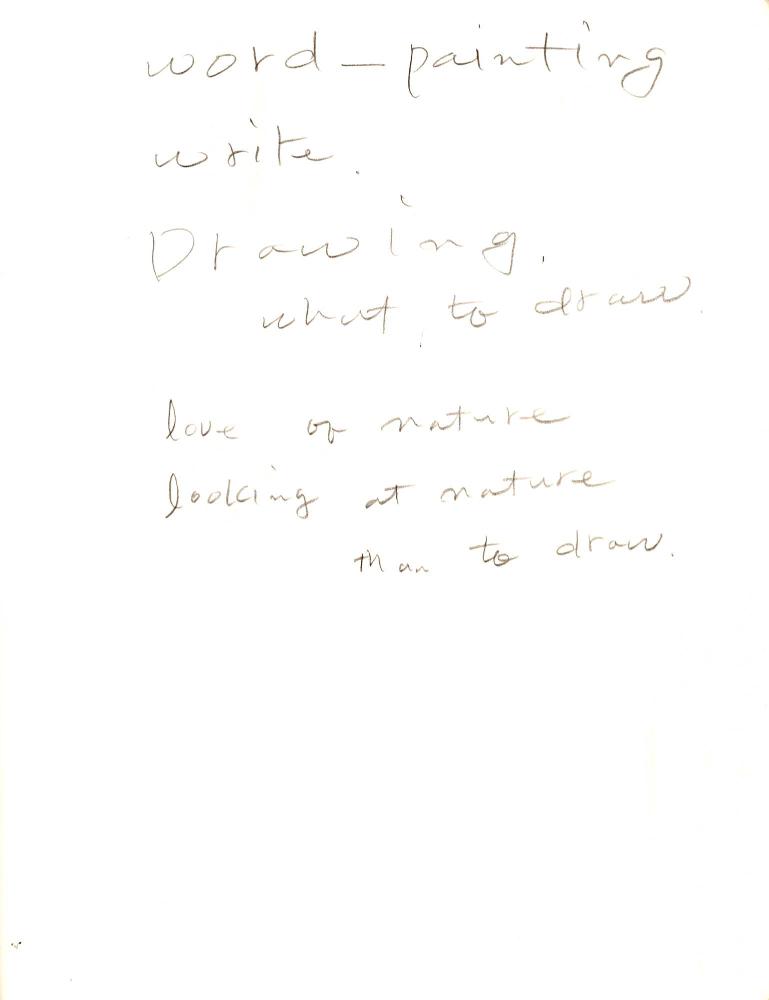 word - painting
write.
Drawing.
what to draw.
love of nature
looking at nature
than to draw.